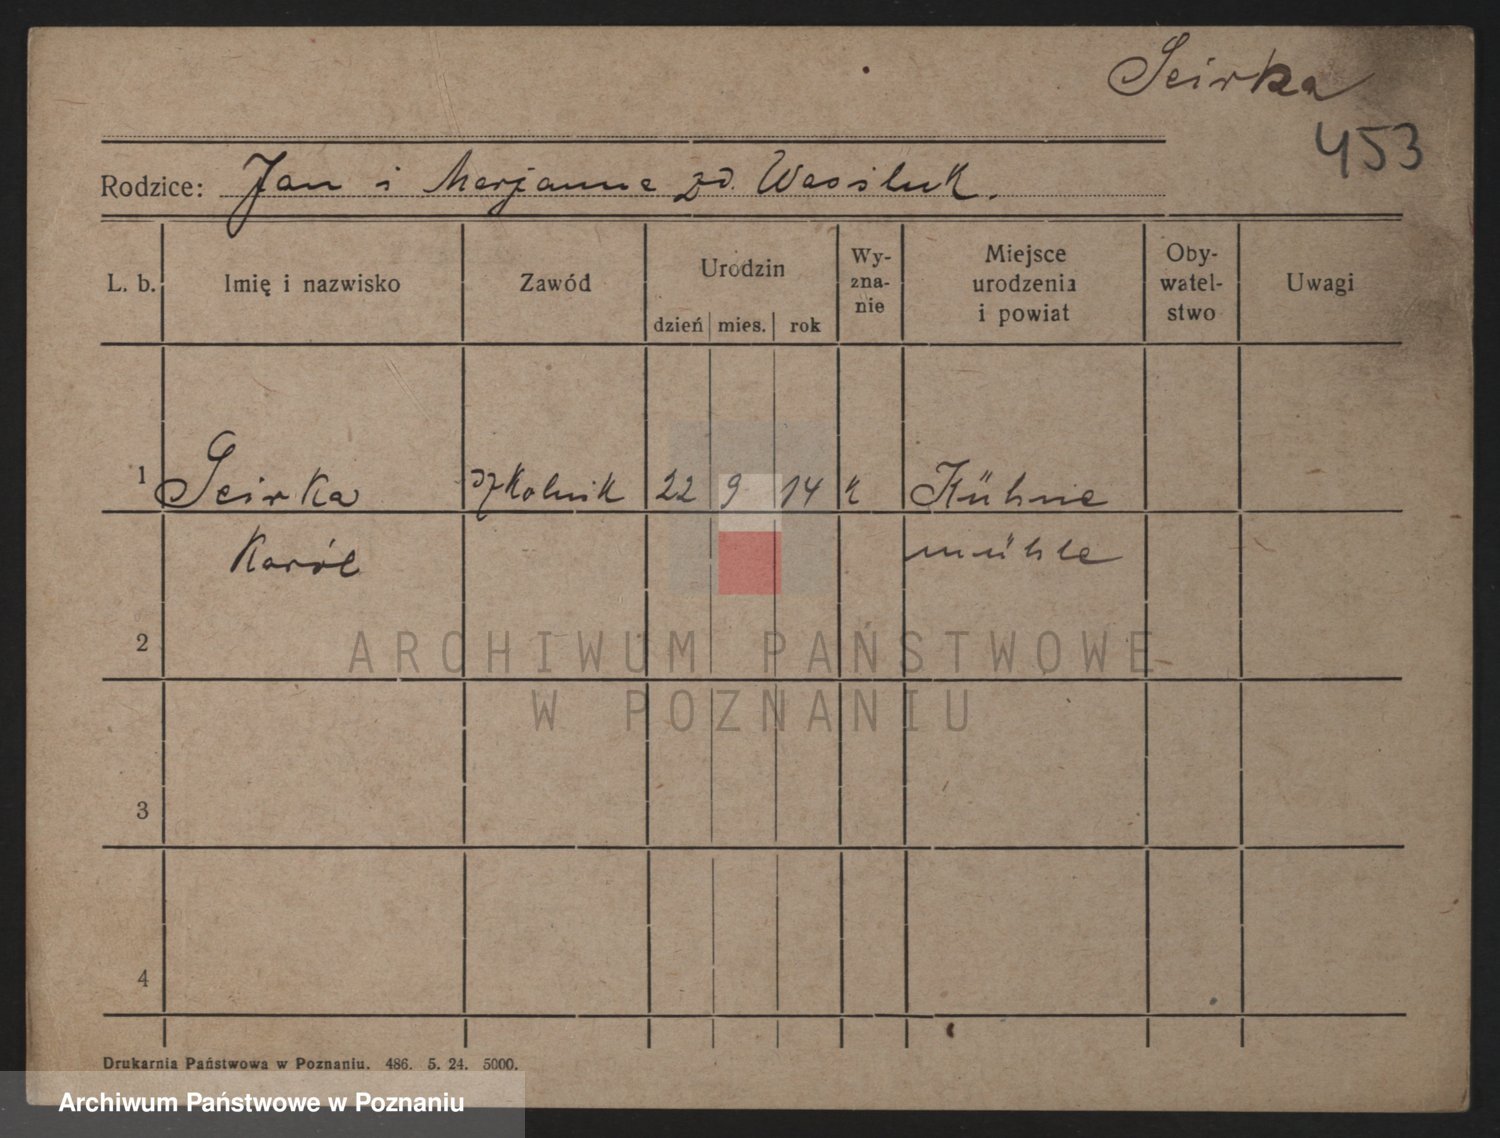 Scirka
453
Rodzice: Jan i Marjanna zd. Wasiluk.
L. b. Imię i nazwisko Zawód Urodzin dzień mies. rok Wy-zna-nie Miejsce urodzenia i powiat Oby-watel-stwo Uwagi
1 Scirka szkolnik 22 9 14 k Kühne
Karól mühle
2
ARCHIWUM PAŃSTWOWE
W POZNANIU
3
4
Drukarnia Państwowa w Poznaniu. 486. 5. 24. 5000.
Archiwum Państwowe w Poznaniu